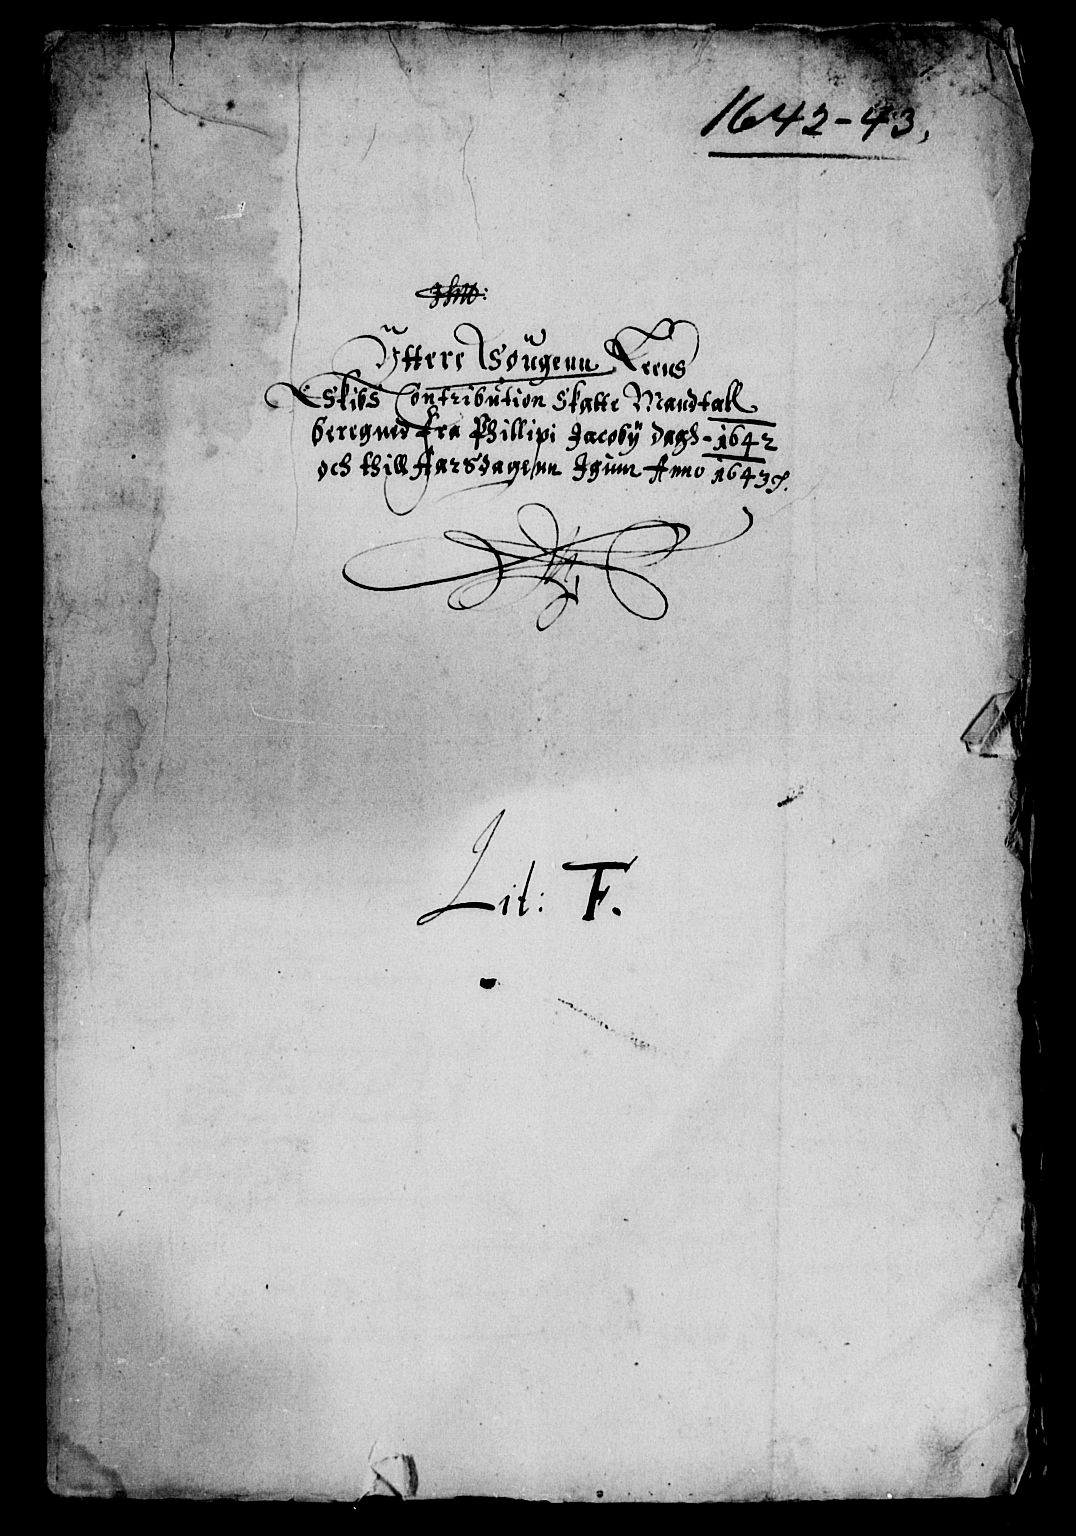 1642-43,
Yttere Sougenn Leens
Eskibs Contribution Skatte Mandtall
beregned fra Phillipi Jacobÿ dagh - 1642
och thill Aarsdagenn Igien Anno 1643
Lit: F.